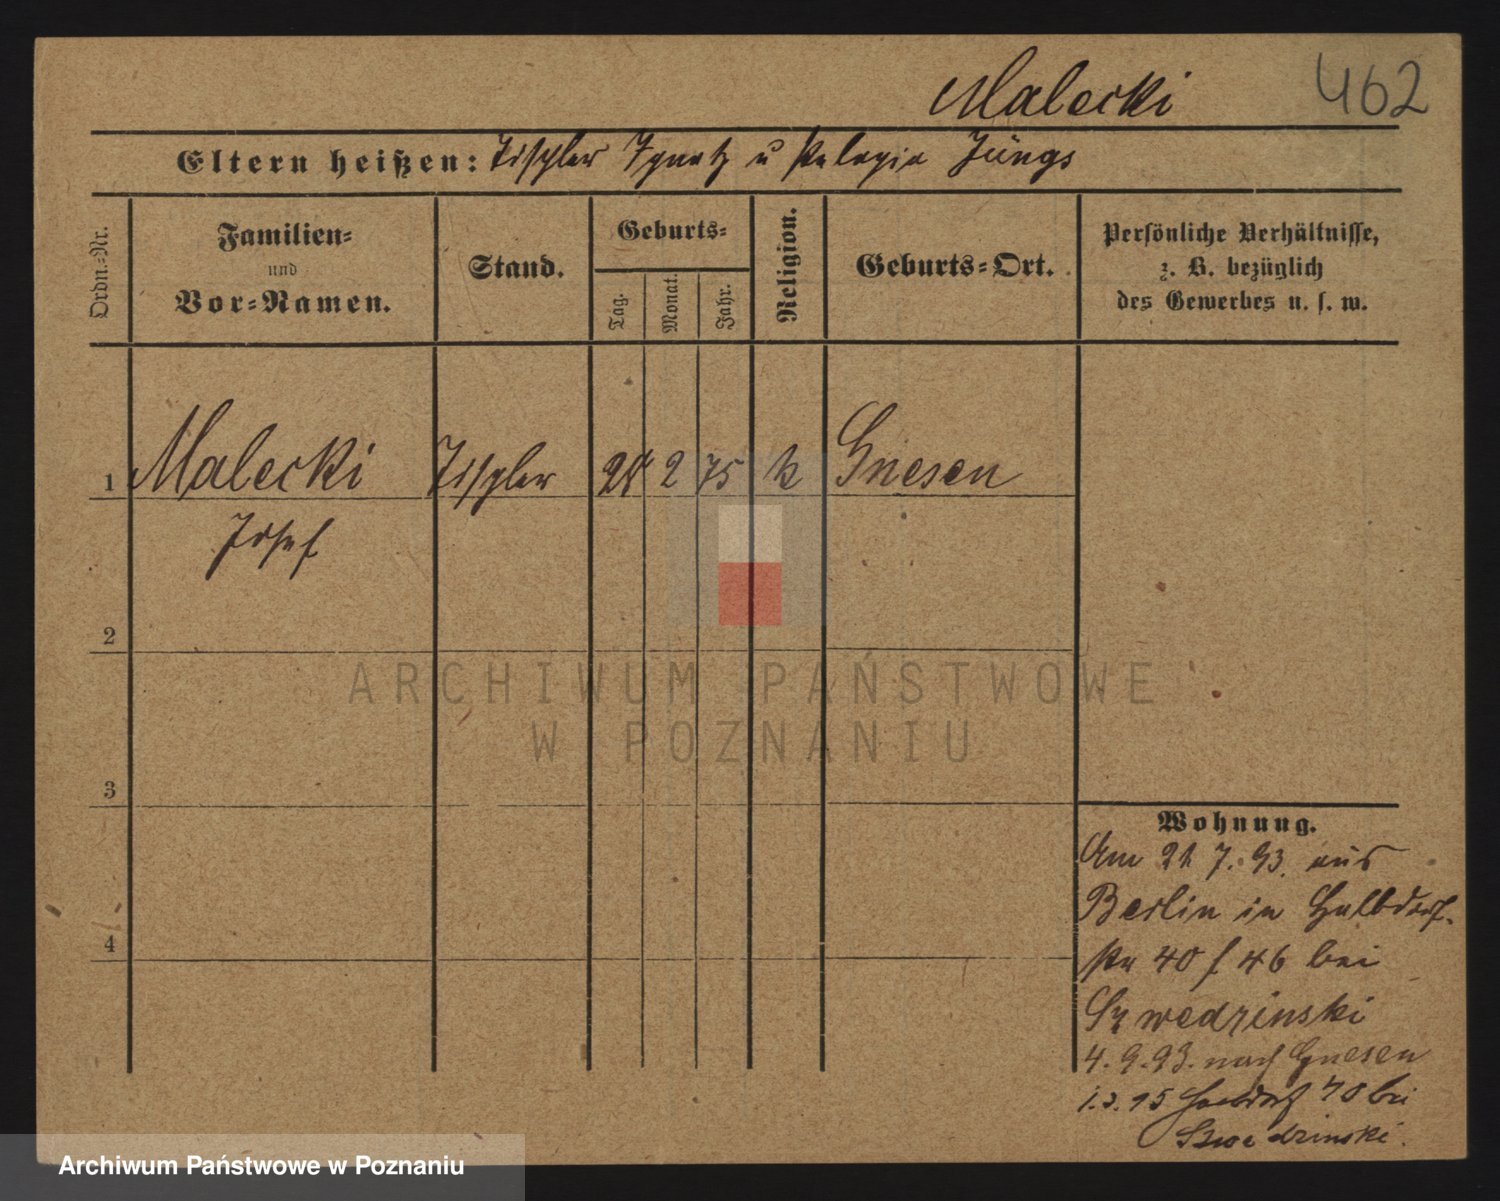 Malecki
462
Eltern heißen: Tischler Ignatz u Pelagia Jüngs
Ordn.-Nr.
Familien-
und
Vor-Namen.
Stand.
Geburts-
Tag.
Monat.
Jahr.
Religion.
Geburts-Ort.
Persönliche Verhältnisse,
z. B. bezüglich
des Gewerbes u. s. w.
1 Malecki Tischler 2 75 k Gnesen
Josef
2
3
4
Wohnung.
Am 21 7. 93. aus
Berlin in Halbdorf-
str 40 / 46 bei
Szwedzinski
4. 9. 93. nach Gnesen
1.3.95 Halbdorf 40 bei
Szwedzinski.
ARCHIWUM PAŃSTWOWE
W POZNANIU
Archiwum Państwowe w Poznaniu